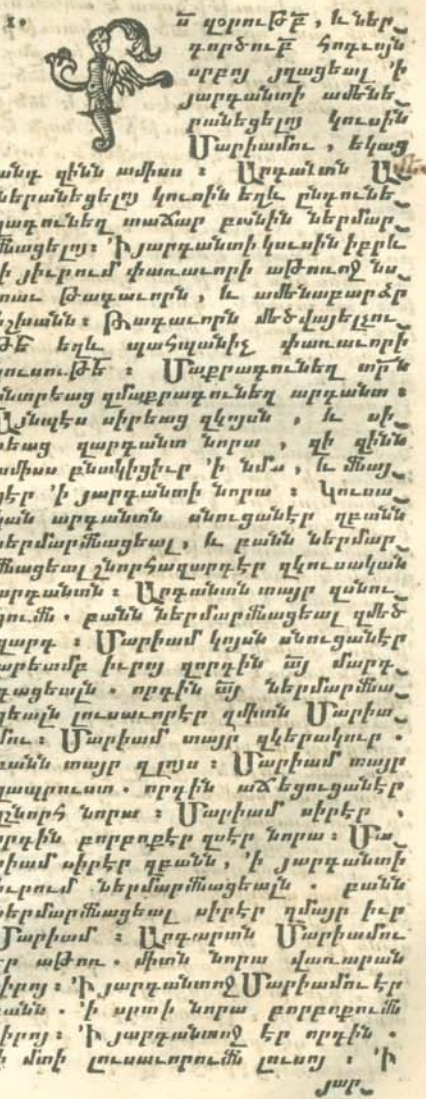 ս՟ զօրութե՟, և ներ֊
գործութե՟ հոգւոյն
սրբոյ յղացեալ 'ի
յարգանտի ամենե֊
րանեցելոյ կուսին
Մարիամու, եկաց
անդ զինն ամիսս : Արգանտն Ա
ներանեցելոյ կուսին եղև ընդունե֊
տաճար բանին ներմար֊
մնացելոյ: 'Ի յարգանտի կուսին իբրև
ի յիւրում փառաւորի աթոռոջ նս֊
տաւ թագաւորն, և ամենաբարձր
իշխանն : Թագաւորն մեծվայելչու֊
թե՟ եղև պահպանիչ փառաւորի
կուսութե՟ : Մաքրագունեղ տր՟ն
ընտրեաց զմաքրագունեղ արգանտ :
Այնպէս սիրեաց զկոյսն, և սի֊
րեաց զարգանտ նորա, զի զինն
ամիսս բնակիցիւր 'ի նմա, և մնայ֊
ցէր 'ի յարգանտի նորա : Կուսա֊
կան արգանտն սնուցանէր զբանն
ներմարմնացեալ, և բանն ներմար֊
մնացեալ շնորհազարդէր զկուսական
արգանտն : Արգանտն տայր զսնու֊
ցումն . բանն ներմարմնացեալ զմեծ
զարդ : Մարիամ կոյսն սնուցանէր
արեամբ իւրոյ զորդին ա՟յ մարդ֊
գացեալն . որդին ա՟յ ներմարմնա֊
ցեալն լուսաւորէր զմիտն Մարիա֊
մու : Մարիամ տայր զկերակուր .
բանն տայր զլոյս : Մարիամ տայր
զապրուստ . որդին աճեցուցանէր
զշնորհ նորա : Մարիամ սիրէր .
որդին բորբոքէր զսէր նորա : Մա֊
րիամ սիրէր զբանն, 'ի յարգանտի
իւրում ներմարմնացեալն . բանն
ներմարմնացեալ սիրէր զմայր իւր
Մարիամ : Արգարտն Մարիամու
էր աթոռ . միտն նորա վառարան
սիրոյ : 'Ի յարգանտոջ Մարիամու էր
բանն . 'ի սրտի նորա բորբոքումն
սիրոյ : 'Ի յարգանտոջ էր որդին .
ի մտի լուսաւորումն լուսոյ : 'Ի
յար֊